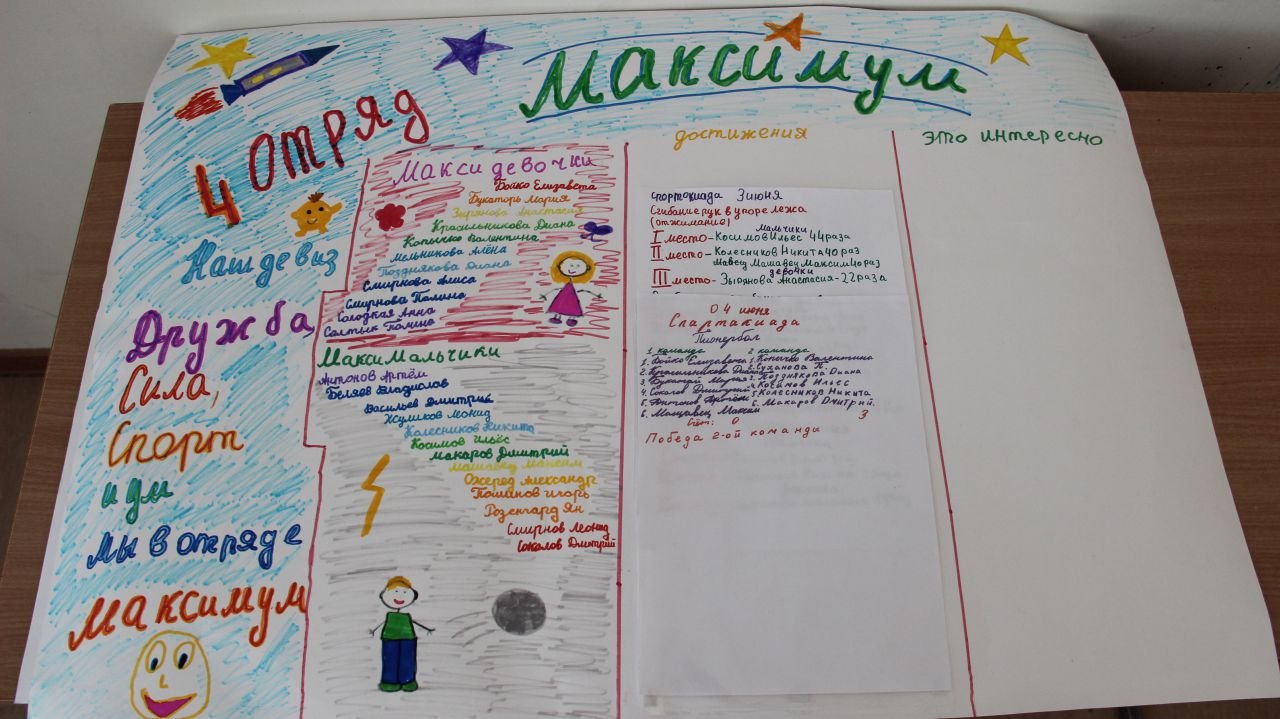 Максимум
4 отряд
Наш девиз
Дружба
Сила,
Спорт
и ум
Мы в отряде
Максимум
Макси девочки
Бойко Елизавета
Букаторь Мария
Зырянова Анастасия
Красильникова Диана
Копычко Валентина
Мельникова Алёна
Позднякова Диана
Смирнова Алиса
Смирнова Полина
Солодкая Анна
Салтык Полина
МаксиМальчики
Антонов Артём
Беляев Владислов
Васильев Дмитрий
Жуликов Леонид
Колесников Никита
Косимов Ильёс
Макаров Дмитрий
Машавец Максим
Ожеред Александр
Пашинов Игорь
Розенгард Ян
Смирнов Леонид
Соколов Дмитрий
достижения
Спортокиада 3 июня
Сгибание рук в упоре лежа
(отжимание)
Мальчики
I место - Косимов Ильёс 44 раза
II место - Колесников Никита 40 раз
Машавец Максим 40 раз
девочки
III место - Зырянова Анастасия - 22 раза
04 июня
Спартакиада
Пионербол
1 команда 2 команда
1. Бойко Елизавета 1. Копычко Валентина
2. Красильникова Диана 2. Суханова П.
3. Мария 3. Позднякова Диана
4. Соколов Дмитрий 4. Косимов Ильёс
5. Антонов Артём 5. Колесников Никита
6. Машавец Максим 6. Макаров Дмитрий.
Счёт: 0 3
Победа 2-ой команды
это интересно